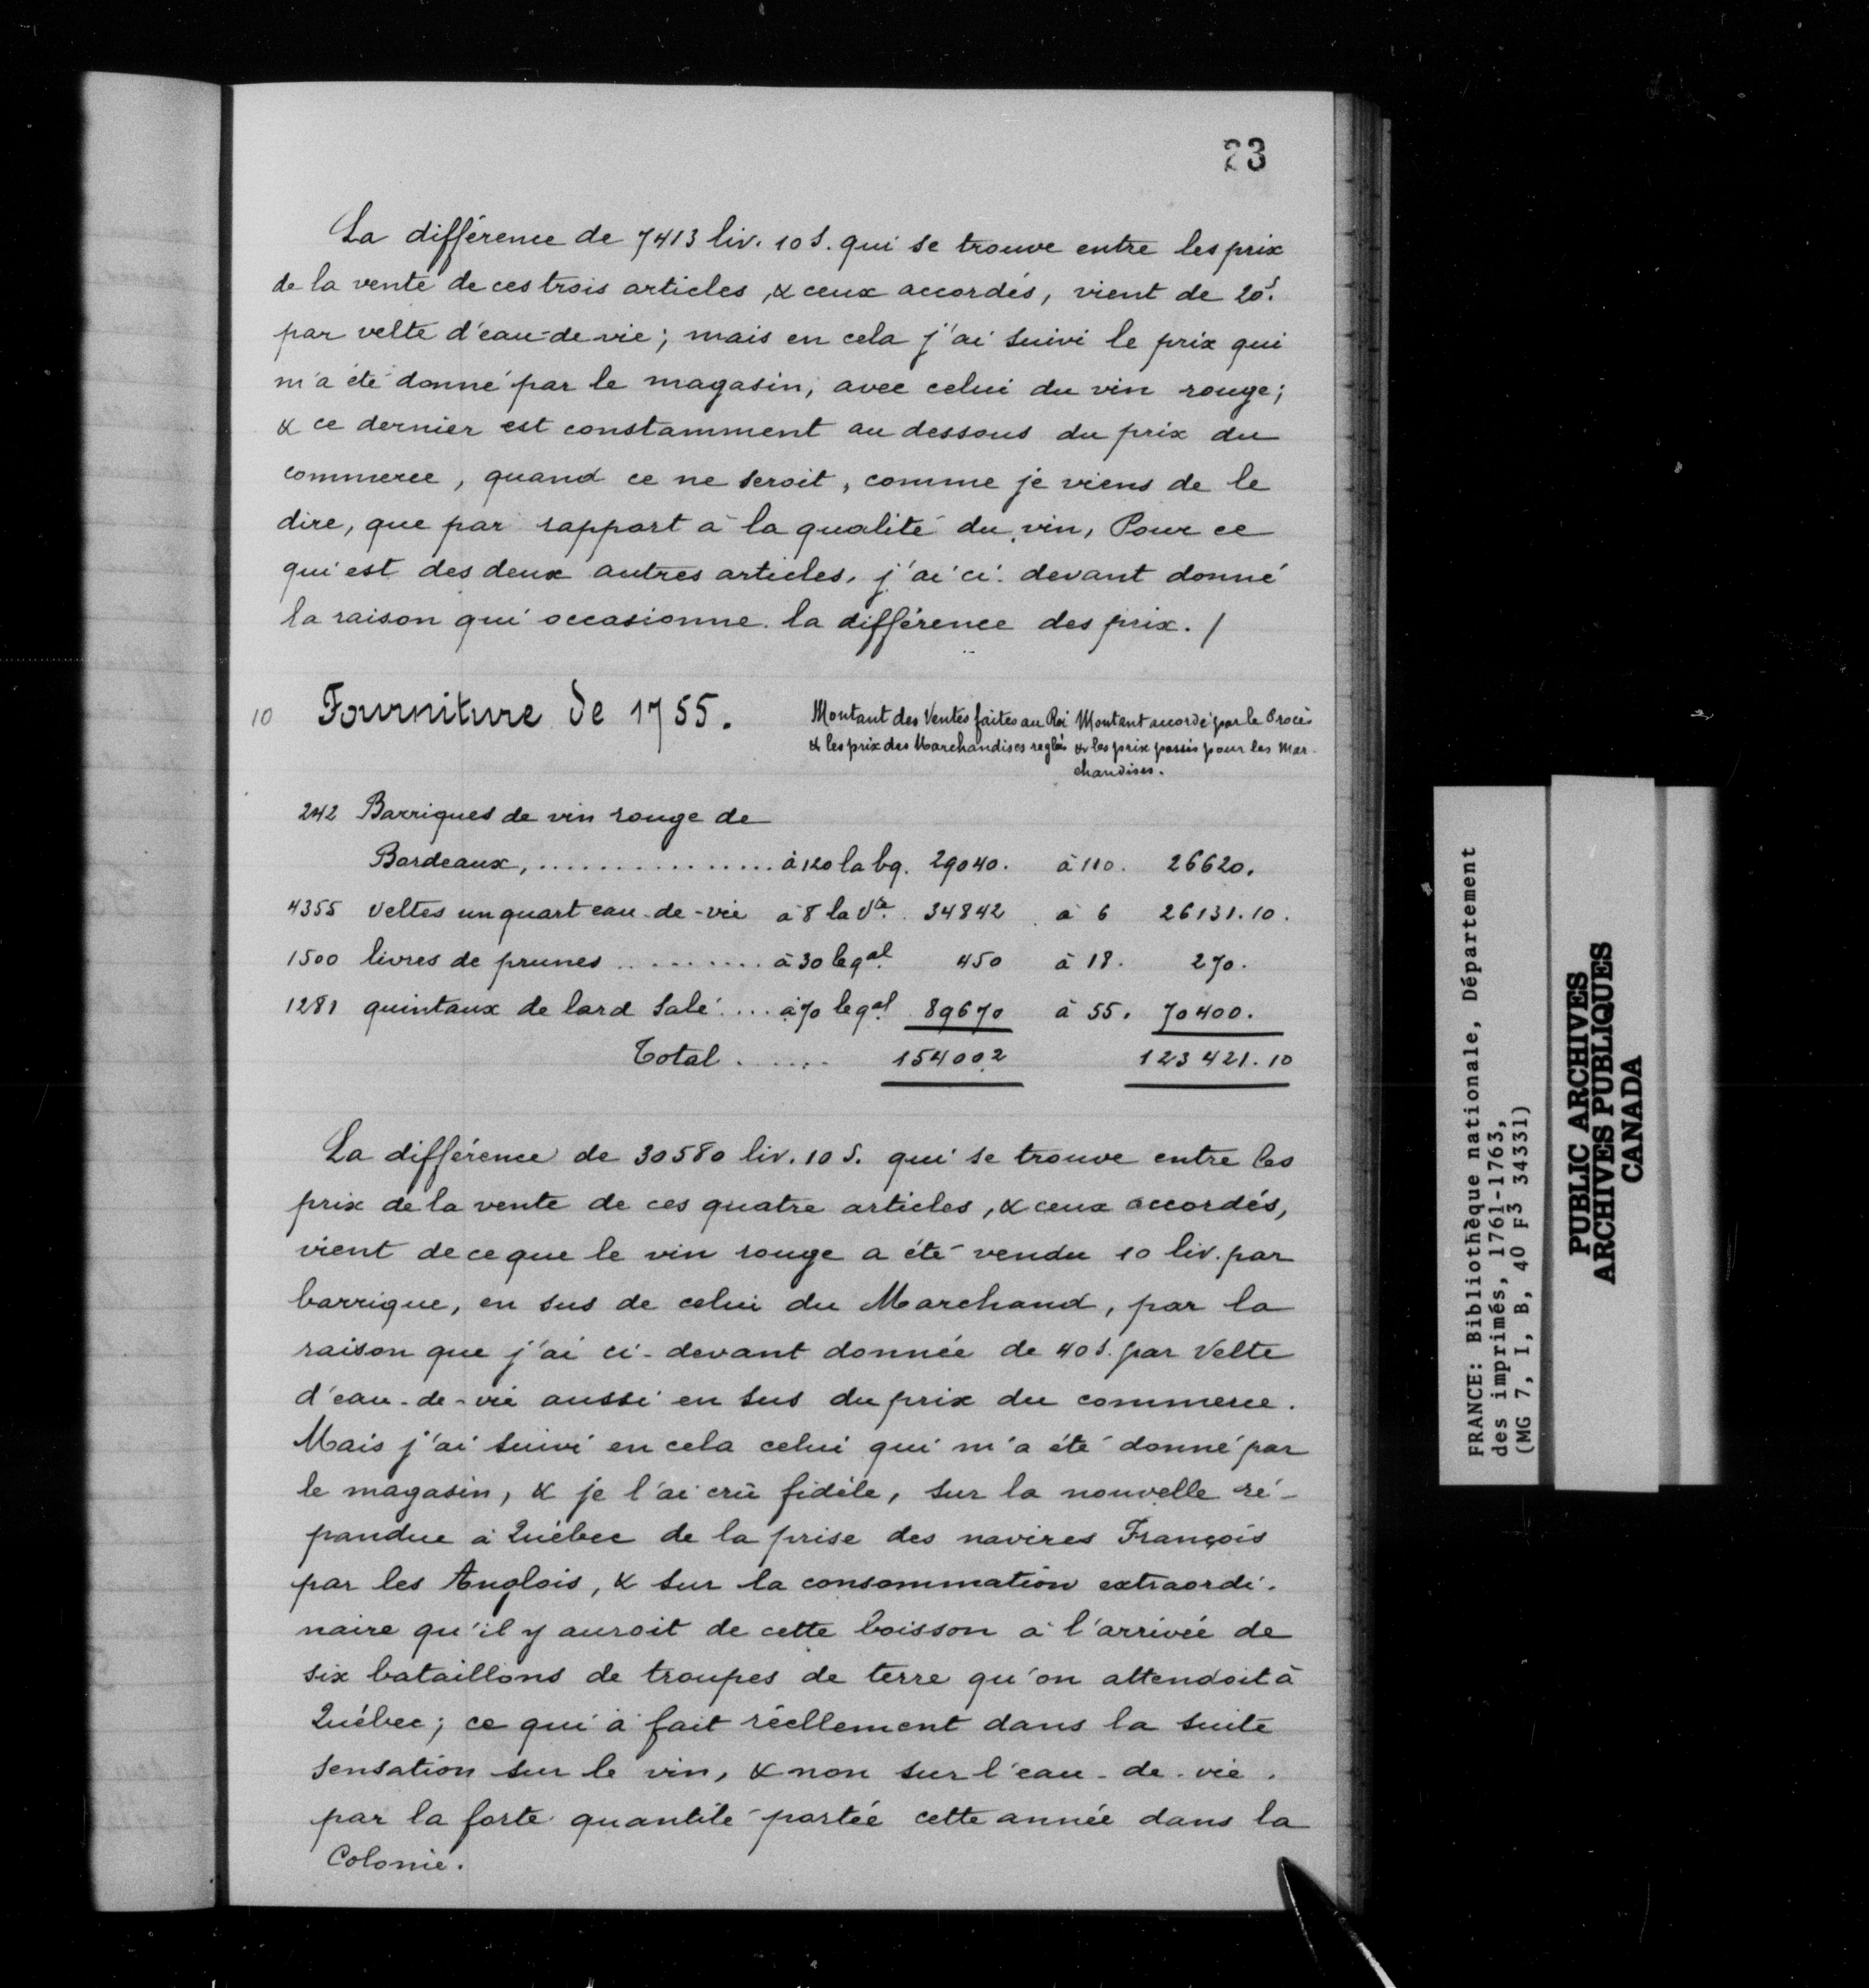 23
La différence de 7413 liv. 10 s. qui se trouve entre les prix
de la vente de ces trois articles, & ceux accordés, vient de 20s.
par velte d'eau-de-vie; mais en cela j'ai suivi le prix qui
m'a été donné par le magasin, avec celui du vin rouge;
& ce dernier est constamment au dessous du prix du
commerce, quand ce ne seroit, comme je viens de le
dire, que par rapport à la qualité du vin, Pour ce
qui est des deux autres articles, j'ai ci-devant donné
la raison qui occasionne la différence des prix. /
10 Fourniture de 1755.
Montant des Ventes faites au Roi & les prix des Marchandises reglés
Montant accordé par le Procès & les prix passés pour les Mar-
chandises.
242 Barriques de vin rouge de
Bordeaux, ................ à 120 la bq. 29040. à 110. 26620.
4355 Veltes un quart eau-de-vie à 8 la Vte. 34842 à 6 26131.10.
1500 livres de prunes .......... à 30 le qal. 450 à 18. 270.
1281 quintaux de lard salé .... à 70 le qal. 89670 à 55. 70400.
Total ...... 154002 123421.10
La différence de 30580 liv. 10 s. qui se trouve entre les
prix de la vente de ces quatre articles, & ceux accordés,
vient de ce que le vin rouge a été vendu 10 liv. par
barrique, en sus de celui du Marchand, par la
raison que j'ai ci-devant donnée de 40 s. par Velte
d'eau-de-vie aussi en sus du prix du commerce.
Mais j'ai suivi en cela celui qui m'a été donné par
le magasin, & je l'ai crû fidèle, sur la nouvelle ré-
pandue à Québec de la prise des navires François
par les Anglois, & sur la consommation extraordi-
naire qu'il y auroit de cette boisson à l'arrivée de
six bataillons de troupes de terre qu'on attendoit à
Québec; ce qui a fait réellement dans la suite
sensation sur le vin, & non sur l'eau-de-vie.
par la forte quantité portée cette année dans la
Colonie.
FRANCE: Bibliothèque nationale, Département
des imprimés, 1761-1763,
(MG 7, I, B, 40 F3 34331)
PUBLIC ARCHIVES
ARCHIVES PUBLIQUES
CANADA